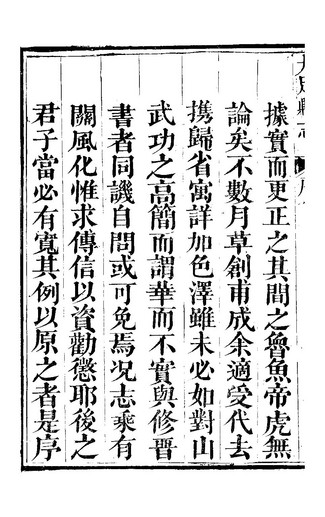 據實而更正之其間之魯魚帝虎無
論矣不數月草創甫成余適受代去
攜歸省寓詳加色澤雖未必如對山
武功之高簡而謂華而不實與修晋
書者同譏自問或可免焉况志乘有
關風化惟求傳信以資勸懲耶後之
君子當必有寬其例以原之者是序